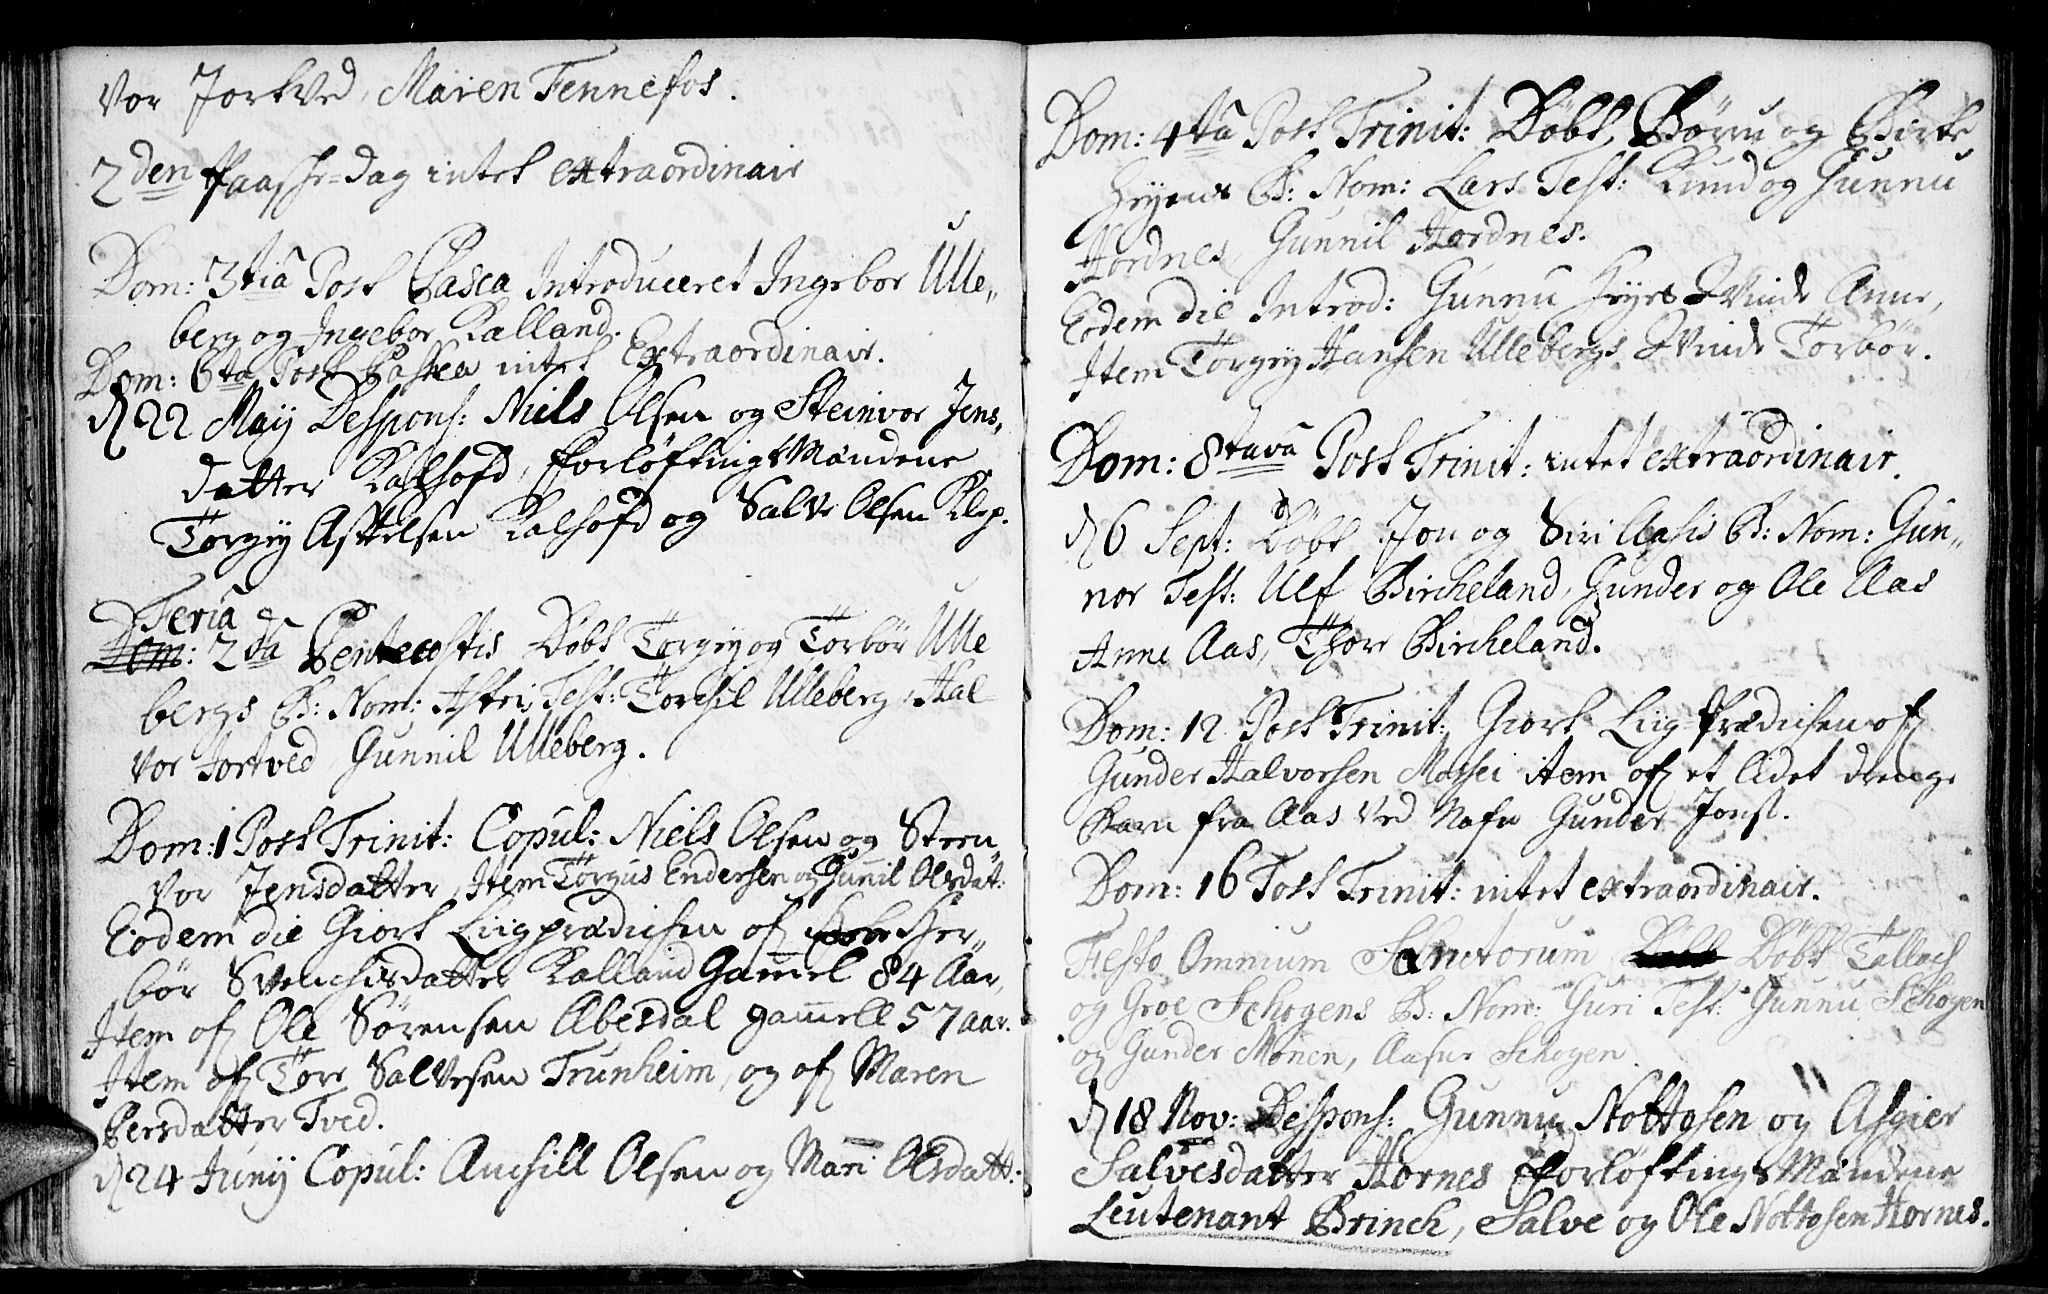 vor Jortved, Maren Fennefos.
2den Paaske-dag intet extraordinair
Dom: 3tia Post Pasca Introduceret Ingebor Ulle„
berg og Ingebor Kalland.
Dom: 6ta Post Pasca intet Extraordinair.
d 22 Maij Despons: Niels Olsen og Steinvor Jens„
datter Kalhofd, Forløftings Mændene
Torgiy Aslelsen Kalhofd og Salve Olsen Klep.
Feria
Dom: 2da Pentecostis Døbt Torgiy og Torbør Ulle
bergs B: Nom: Astri, Test: Torchil Ulleberg, Hal
vor Jortved Gunnil Ulleberg.
Dom: 1 Post Trinit: Copul: Niels Olsen og Steen„
vor Jensdatter, Item Torgus Endersen og Gunil Olsdat:
Eodem die Giort Liigprædichen of Her„
bør Svenchisdatter Kalland Gamel 84 Aar,
Item of Ole Sørensen Abesdal gamell 57 aar.
Item of Tore Salvesen Trunheim, og of Maren
Persdatter Tved.
d 24 Junij Copul: Anchill Olsen og Mari Olsdatt:
Dom: 4ta Post Trinit: Døbt, Børu og Birte
Høyens B: Nom: Lars Test: Knud og Gunnu
Hordnes, Gunnil Hordnes.
Eodem die Introd: Gunnu Høyes Qvinde Anne,
Item Torgiy Hansen Ullebergs Qvinde Torbør.
Dom: 8tava Post Trinit: intet extraordinair.
d 6 Sept: Døbt Jon og Siri Aasis B: Nom: Gun„
nor Test: Ulf Bircheland, Gunder og Ole Aas
Anne Aas, Thore Bircheland.
Dom: 12 Post Trinit: Giort Liig-Prædichen of
Gunder Halvorsen Mossei item of et lidet drenge
Barn fra Aas ved Nafn Gunder Jonss.
Dom: 16 Post Trinit: intet extraordinair.
Festo Omnium Sanctorum Døbt Døbt Tallach
og Groe Schogens B: Nom: Guri Test: Gunnu Schogen
og Gunder Monen, Aasne Schogen
d 18 Nov: Despons: Gunnu Nottosen og Asgier
Salvesdatter Hornes Forløftings Mændene
Leutenant Brinch, Salve og Ole Nottosen Hornes.